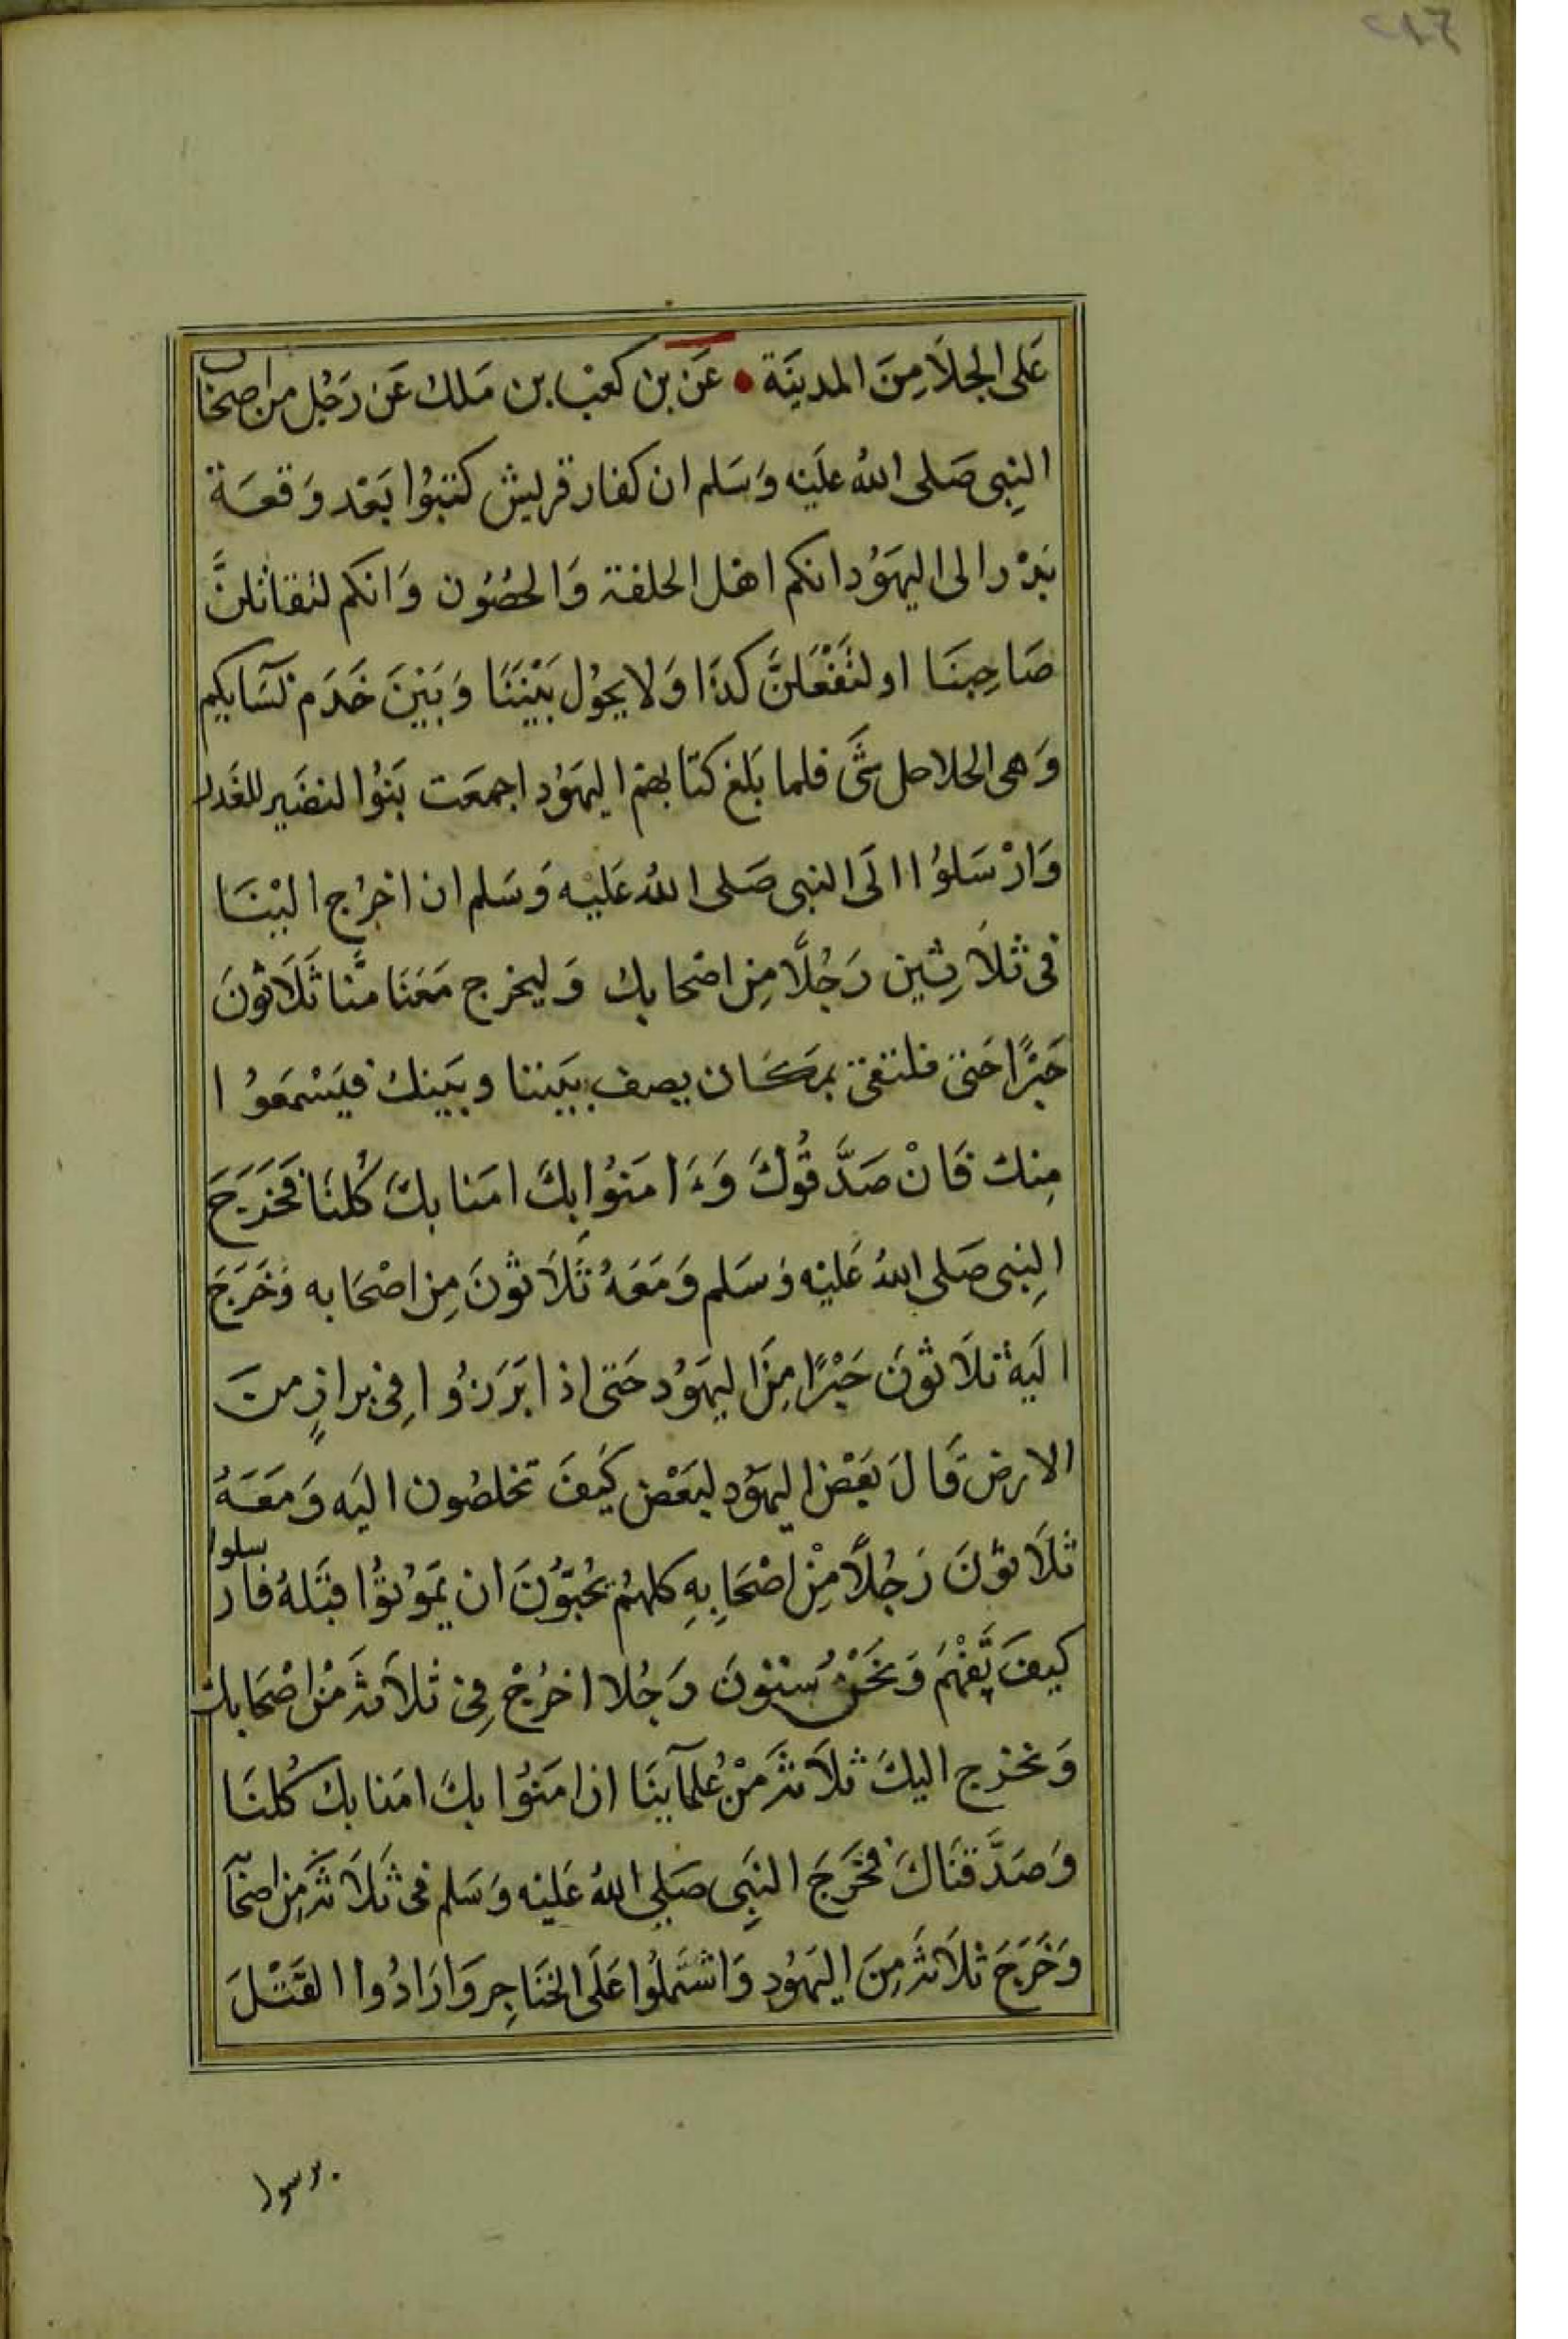 عَلى الجلَا مِنَ المدينَة • عَن بن كعب بن مَلك عَن رَجُل من اصحاب
النبِى صَلى اللهُ عَليْه وَسَلم ان كفار قريش كتبُوا بَعْد وَقعَة
بَدْر الى اليهَوُد انكم اهل الحلقة وَالحصُون وَانكم لتقاتلنَّ
صَاحِبنَا او لتَفْعَلنَّ كذا وَلا يحوُل بَيْننَا وَبَيْنَ خَدَم نسَآيكم
وَهى الحلاحل شَى فلما بَلغ كتابهم اليهَوُد اجمعَت بَنوُا النضَير للغَدر
وَارْسَلوُا الَى النبى صَلى اللهُ عَليْه وَسَلم ان اخرُج اليْنَا
فى ثلَاثِين رَجُلًا مِن اصْحابك وَليخرج مَعَنَا منَّا ثَلَاثوُنَ
حَبْرًا حَتى فلتقى بمَكَان يصف بَيننا وبَينك فيَسْمَعوُا
مِنك فَانْ صَدَّقوُكَ وَءَامَنوُا بِكَ امَنا بكَ كُلنَا فَخَرَجَ
النِبى صَلى اللهُ عَليْه وَسَلم وَمَعَهُ ثَلَاثوُنَ مِن اصْحَابه وَخَرَجَ
اليَه ثلَاثوُنَ حَبْرًا مِنَ اليهَوُد حَتى اذا بَرَزُوا فِى برازٍ منَ
الارض قَالَ بَعْض اليهَوُد لبَعْض كيَفَ تخلصُون اليَه وَمَعَهُ
ثلَاثوُنَ رَجُلًا مِنْ اصْحَابِهِ كلهُم يحُبّوُنَ ان يَموُتوُا قبْلهُ فارسلوا
كيفَ نَفْهَمُ وَنحَنُ ستوُنَ رَجُلا اخرُجْ فِى ثلَاثة مْن اصْحَابك
وَنخرج اليكَ ثلَاثة مْن عُلمآينَا ان امَنوُا بكَ امَنا بك كُلنَا
وَصَدَّقنَاكَ فخرَجَ النبِى صَلى اللهُ عَليْه وَسَلم فى ثَلَاثة مِن اصحَا
وَخَرَجَ ثلَاثة مِنَ اليَهوُدِ وَاشتَملوُا عَلَى الخنَاجِر وَارَادُوا القَتْلَ
رسول